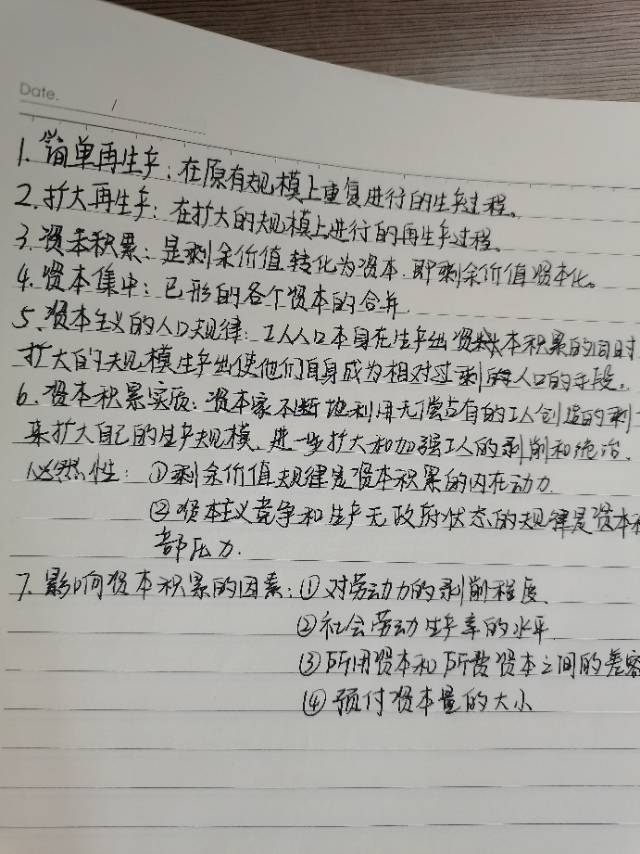 Date.
1. 简单再生产：在原有规模上重复进行的生产过程。
2. 扩大再生产：在扩大的规模上进行的再生产过程。
3. 资本积累：是剩余价值转化为资本，即剩余价值资本化。
4. 资本集中：已形的各个资本的合并
5、资本主义的人口规律：工人人口本身在生产出资本积累的同时
扩大的规模生产出使他们自身成为相对过剩人口的手段。
6. 资本积累实质：资本家不断地利用无偿占有的工人创造的剩
来扩大自己的生产规模，进一步扩大和加强工人的剥削和统治。
必然性：①剩余价值规律是资本积累的内在动力.
②资本主义竞争和生产无政府状态的规律是资本积
部压力.
7. 影响资本积累的因素：①对劳动力的剥削程度
②社会劳动生产率的水平
③所用资本和所费资本之间的差额
④预付资本量的大小